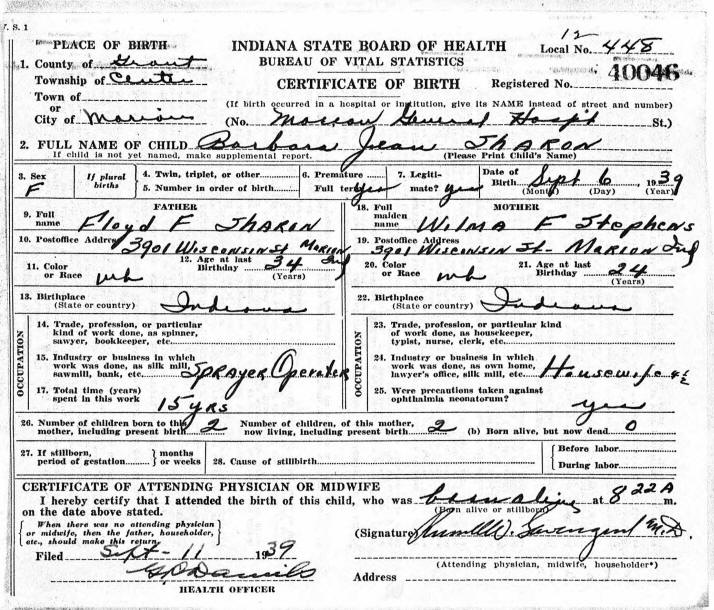 V. S. 1
12
PLACE OF BIRTH
INDIANA STATE BOARD OF HEALTH
Local No. 448
1. County of Grant
BUREAU OF VITAL STATISTICS
40046
Township of Center
CERTIFICATE OF BIRTH
Registered No.
Town of
or
(If birth occurred in a hospital or institution, give its NAME instead of street and number)
City of Marion
(No. Marion General Hospit St.)
2. FULL NAME OF CHILD Barbara Jean THARON
If child is not yet named, make supplemental report. (Please Print Child's Name)
3. Sex F
If plural births
4. Twin, triplet, or other
5. Number in order of birth
6. Premature
Full term yes
7. Legitimate? yes
Date of Birth Sept 6 1939
(Month) (Day) (Year)
FATHER
9. Full name Floyd F THARON
10. Postoffice Address 3901 Wisconsin St MARION Ind
11. Color or Race wh
12. Age at last Birthday 34 (Years)
13. Birthplace Indiana
(State or country)
OCCUPATION
14. Trade, profession, or particular kind of work done, as spinner, sawyer, bookkeeper, etc.
15. Industry or business in which work was done, as silk mill, sawmill, bank, etc. SPRAYER Operator
17. Total time (years) spent in this work 15 yrs
MOTHER
18. Full maiden name WILMA F Stephens
19. Postoffice Address 3901 WISCONSIN St- MARION Ind
20. Color or Race wh
21. Age at last Birthday 24
(Years)
22. Birthplace Indiana
(State or country)
OCCUPATION
23. Trade, profession, or particular kind of work done, as housekeeper, typist, nurse, clerk, etc.
24. Industry or business in which work was done, as own home, lawyer's office, silk mill, etc. Housewife 4 1/2
25. Were precautions taken against ophthalmia neonatorum? yes
26. Number of children born to this mother, including present birth 2
Number of children, of this mother, now living, including present birth 2
(b) Born alive, but now dead 0
27. If stillborn, period of gestation months or weeks
28. Cause of stillbirth
Before labor
During labor
CERTIFICATE OF ATTENDING PHYSICIAN OR MIDWIFE
I hereby certify that I attended the birth of this child, who was born alive at 8 22 A m.
on the date above stated. (Born alive or stillborn)
When there was no attending physician or midwife, then the father, householder, etc., should make this return.
(Signature) M.D.
(Attending physician, midwife, householder*)
Filed Sept - 11 1939
Address
HEALTH OFFICER